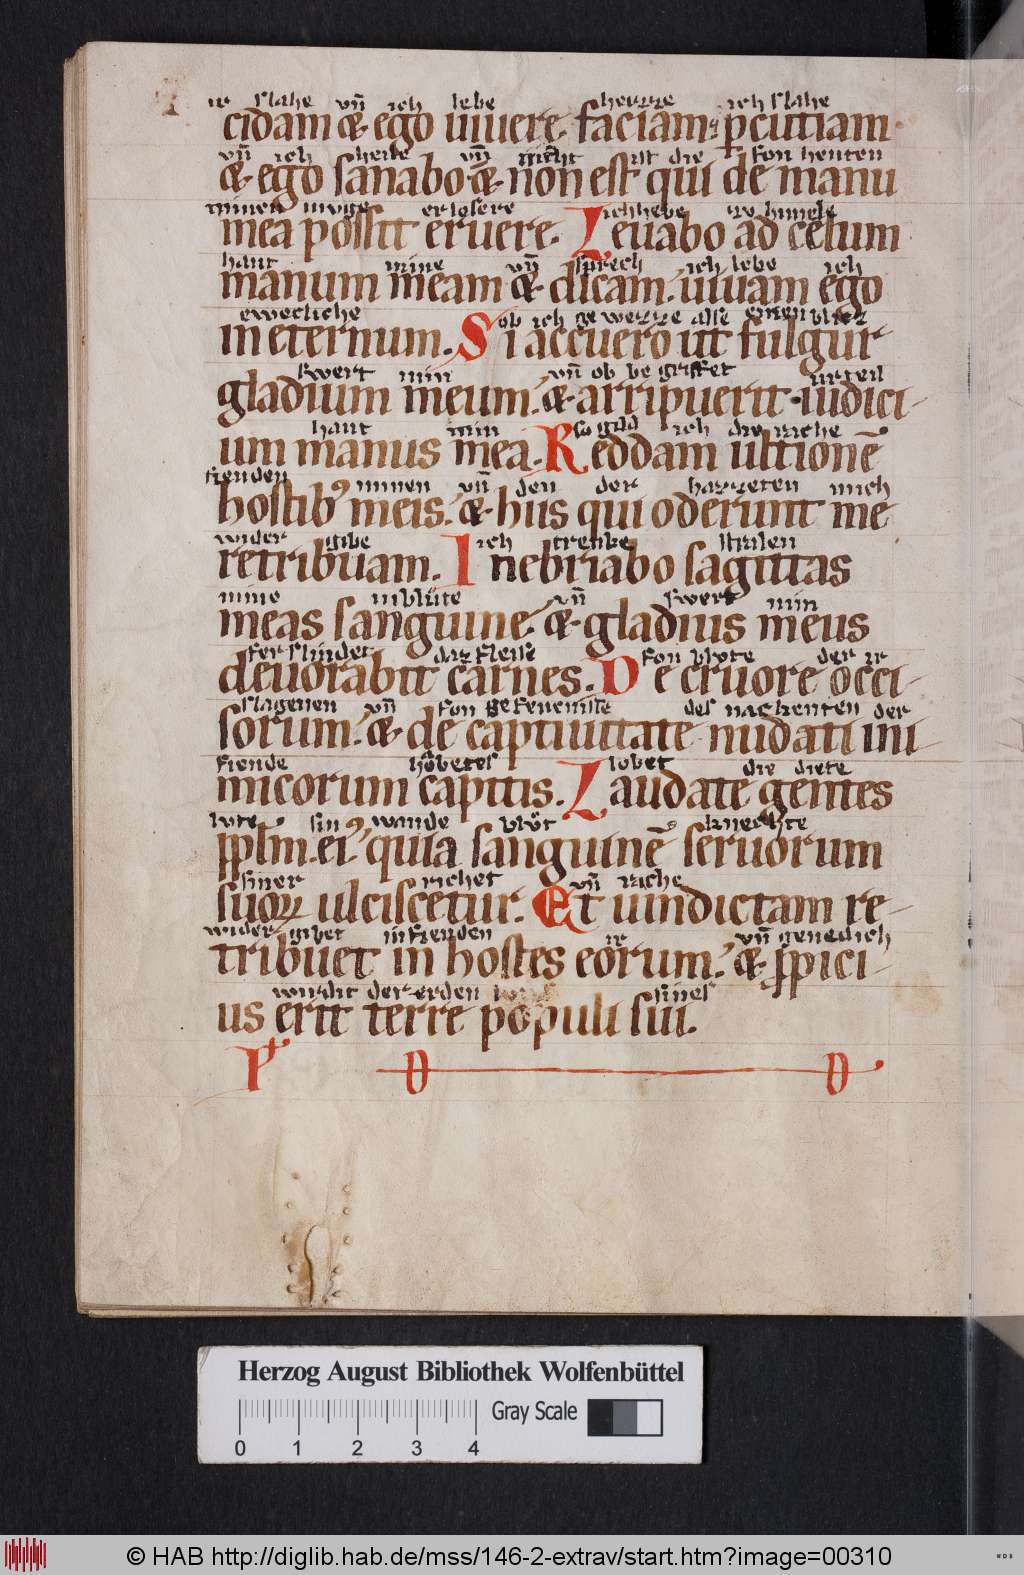 ir slahe vñ ich lebe heyzze ich slahe
cidam & ego uiuere faciam: pcutiam
vñ ich heile vñ niht ist die fon henten
& ego sanabo & non est qui de manu
minen muge erlosere ich hebe zo himele
mea possit eruere. Leuabo ad celum
hant mine vñ sprech ich lebe ich
manum meam & dicam. uiuam ego
ewecliche ob ich gewezze alse einen blicz
in eternum. Si accuero ut fulgur
swert min vñ ob begriffet urteil
gladium meum. & arripuerit iudici-
hant min so gild ich die riche
um manus mea. Reddam ultionē
fienden minen vñ den der hazzeten mich
hostib' meis. & hiis qui oderunt me
wider gibe ich trenke stralen
retribuam. Inebriabo sagittas
mine in blůte vñ swert min
meas sanguine. & gladius meus
ferslindet daz fleisc fon blote der ir
deuorabit carnes. De cruore occi-
slagenen vñ fon gefencnisse des nackenten der
sorum. & de captiuitate nudati ini-
fiende hǒbetes lobet die diete
micorum capitis. Laudate gentes
lute sin wande blůt knechte
pplm. ei' quia sanguinē seruorum
siner richet vñ riche
suoꝝ ulciscetur. Et uindictam re-
wider gibet in fienden ir vñ genedich
tribuet in hostes eorum. & ppici-
wirdit der erden sines
us erit terre populi sui.
Herzog August Bibliothek Wolfenbüttel
Gray Scale
0 1 2 3 4
© HAB http://diglib.hab.de/mss/146-2-extrav/start.htm?image=00310